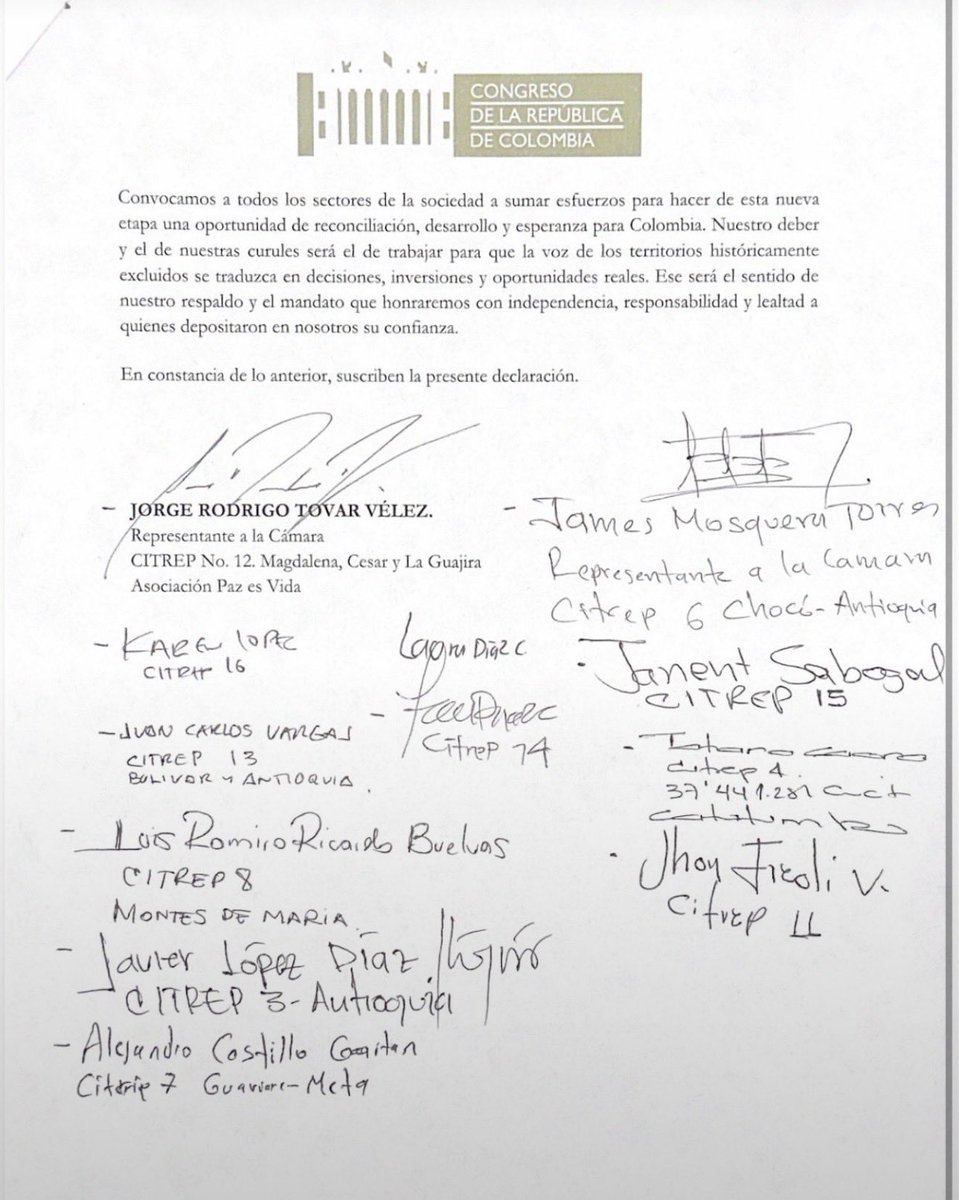 CONGRESO
DE LA REPÚBLICA
DE COLOMBIA
Convocamos a todos los sectores de la sociedad a sumar esfuerzos para hacer de esta nueva
etapa una oportunidad de reconciliación, desarrollo y esperanza para Colombia. Nuestro deber
y el de nuestras curules será el de trabajar para que la voz de los territorios históricamente
excluidos se traduzca en decisiones, inversiones y oportunidades reales. Ese será el sentido de
nuestro respaldo y el mandato que honraremos con independencia, responsabilidad y lealtad a
quienes depositaron en nosotros su confianza.
En constancia de lo anterior, suscriben la presente declaración.
- JORGE RODRIGO TOVAR VÉLEZ.
Representante a la Cámara
CITREP No. 12. Magdalena, Cesar y La Guajira
Asociación Paz es Vida
- James Mosquera Torres
Representante a la Camara
Citrep 6 Chocó-Antioquia
- KAREN LOPEZ
16
Díaz C
Citrep 14
- Janent Sabogal
CITREP 15
- JUAN CARLOS VARGAS
CITREP 13
BOLIVAR Y ANTIOQUIA.
Citrep 4
Catatumbo
- Luis Ramiro Ricardo Buelvas
CITREP 8
MONTES DE MARIA
- Jhoy V.
Citrep 11
- Javier López Díaz
CITREP 3-Antioquia
- Alejandro Castillo Gaitan
Citrip 7 Guaviare-Meta